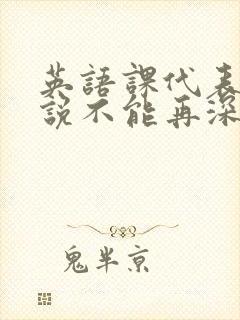 英語課代表
說不能再深
鬼半京